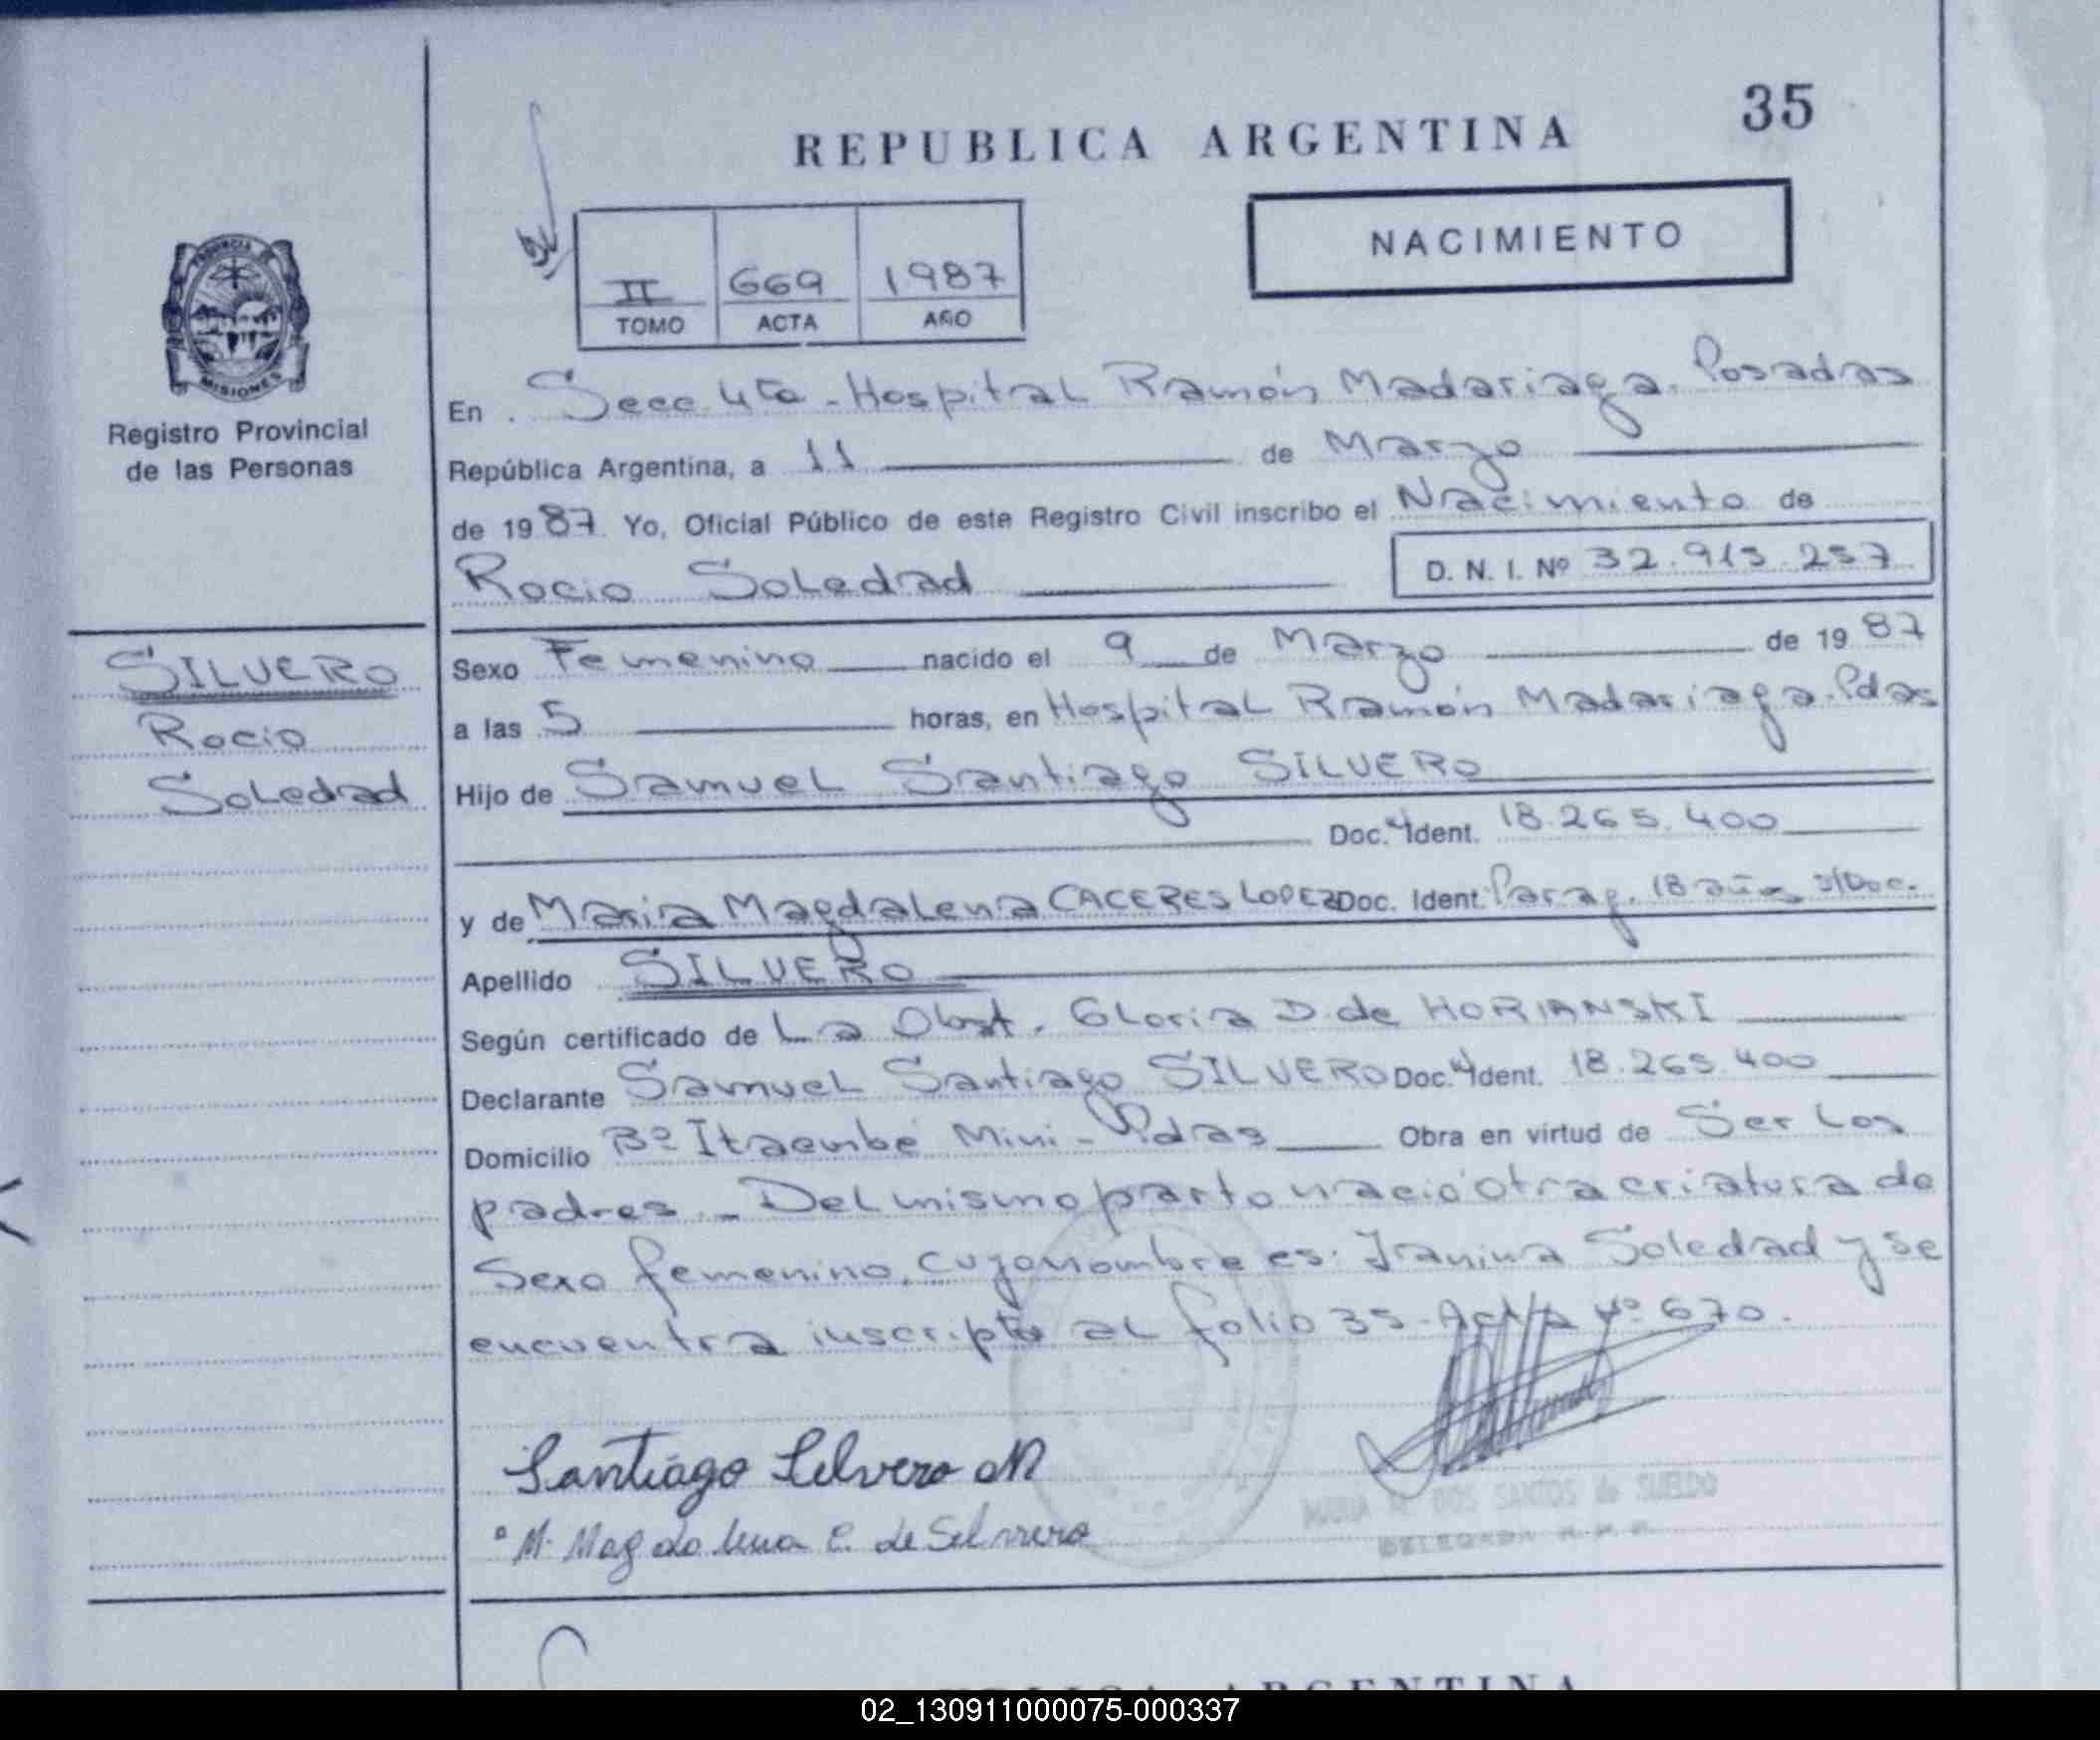 35
REPUBLICA ARGENTINA
NACIMIENTO
II 669 1987
TOMO ACTA AÑO
PROVINCIA DE
MISIONES
Registro Provincial
de las Personas
En Secc. 4ta - Hospital Ramón Madariaga. Posadas
República Argentina, a 11 de Marzo
de 1987. Yo, Oficial Público de este Registro Civil inscribo el Nacimiento de
Rocio Soledad D. N. I. Nº 32.915.257
SILVERO
Rocio
Soledad
Sexo Femenino nacido el 9 de Marzo de 1987
a las 5 horas, en Hospital Ramón Madariaga. Pdas
Hijo de Samuel Santiago SILVERO
Doc. Ident. 18.265.400
y de Maria Magdalena CACERES LOPEZ Doc. Ident. Parag. 18 años s/Doc.
Apellido SILVERO
Según certificado de La Obst. Gloria D. de HORIANSKI
Declarante Samuel Santiago SILVERO Doc. Ident. 18.265.400
Domicilio Bº Itaembé Mini - Pdas Obra en virtud de Ser los
padres - Del mismo parto nació otra criatura de
Sexo femenino, cuyo nombre es: Janina Soledad y se
encuentra inscripta al folio 35 - Acta Nº 670.
Santiago Silvero
M. Magdalena C. de Silvero
MARIA M. DOS SANTOS de SUELDO
DELEGADA
REPUBLICA ARGENTINA
02_130911000075-000337